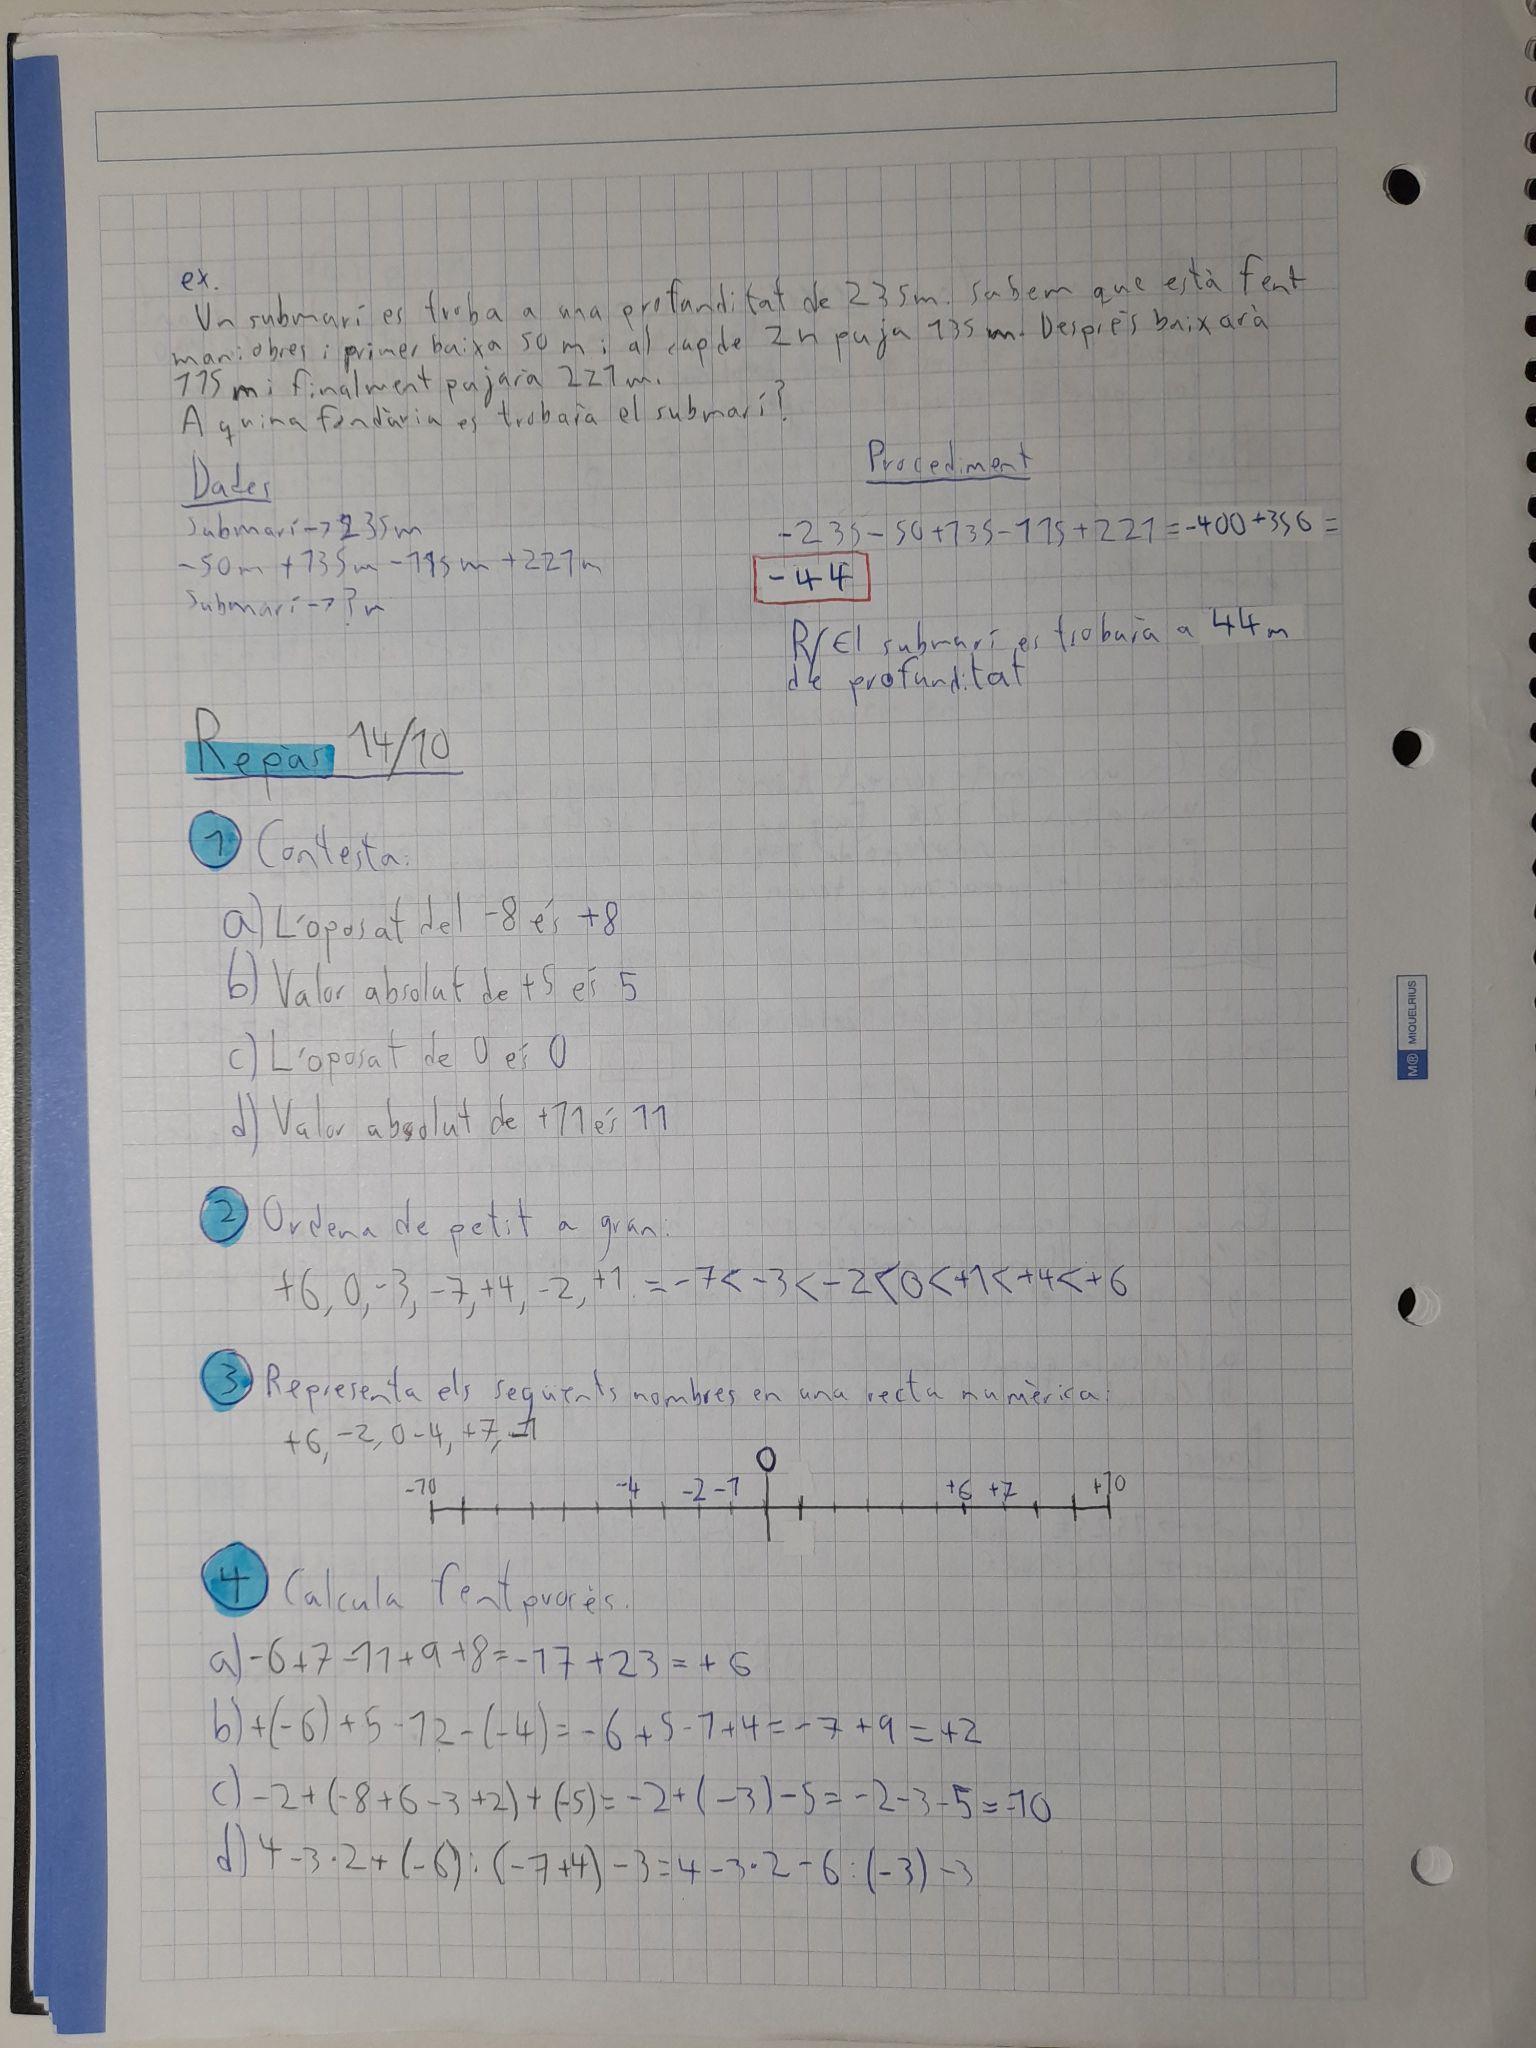 ex.
Un submarí es troba a una profunditat de 235m. Sabem que està fent
maniobres i primer baixa 50 m i al cap de 2h puja 135 m. Després baixarà
115 m i finalment pujarà 221m.
A quina fondària es trobarà el submarí?
Dades
Submarí → 235m
-50m +135m -115m +221m
Submarí → ? m
Procediment
-235-50+135-115+221=-400+356=
-44
R/ El submarí es trobarà a 44m
de profunditat
Repàs 14/10
1 Contesta:
a) L'oposat del -8 és +8
b) Valor absolut de +5 és 5
c) L'oposat de 0 és 0
d) Valor absolut de +11 és 11
2 Ordena de petit a gran:
+6, 0, -3, -7, +4, -2, +1 = -7<-3<-2<0<+1<+4<+6
3 Representa els següents nombres en una recta numèrica:
+6, -2, 0 -4, +7, -1
-10 -4 -2 -1 0 +6 +7 +10
4 Calcula fent procés.
a) -6+7-11+9+8=-17+23=+6
b) +(-6)+5-12-(-4)=-6+5-1+4=-7+9=+2
c) -2+(-8+6-3+2)+(-5)=-2+(-3)-5=-2-3-5=-10
d) 4-3·2+(-6):(-7+4)-3=4-3·2-6:(-3)-3
M® MIQUELRIUS